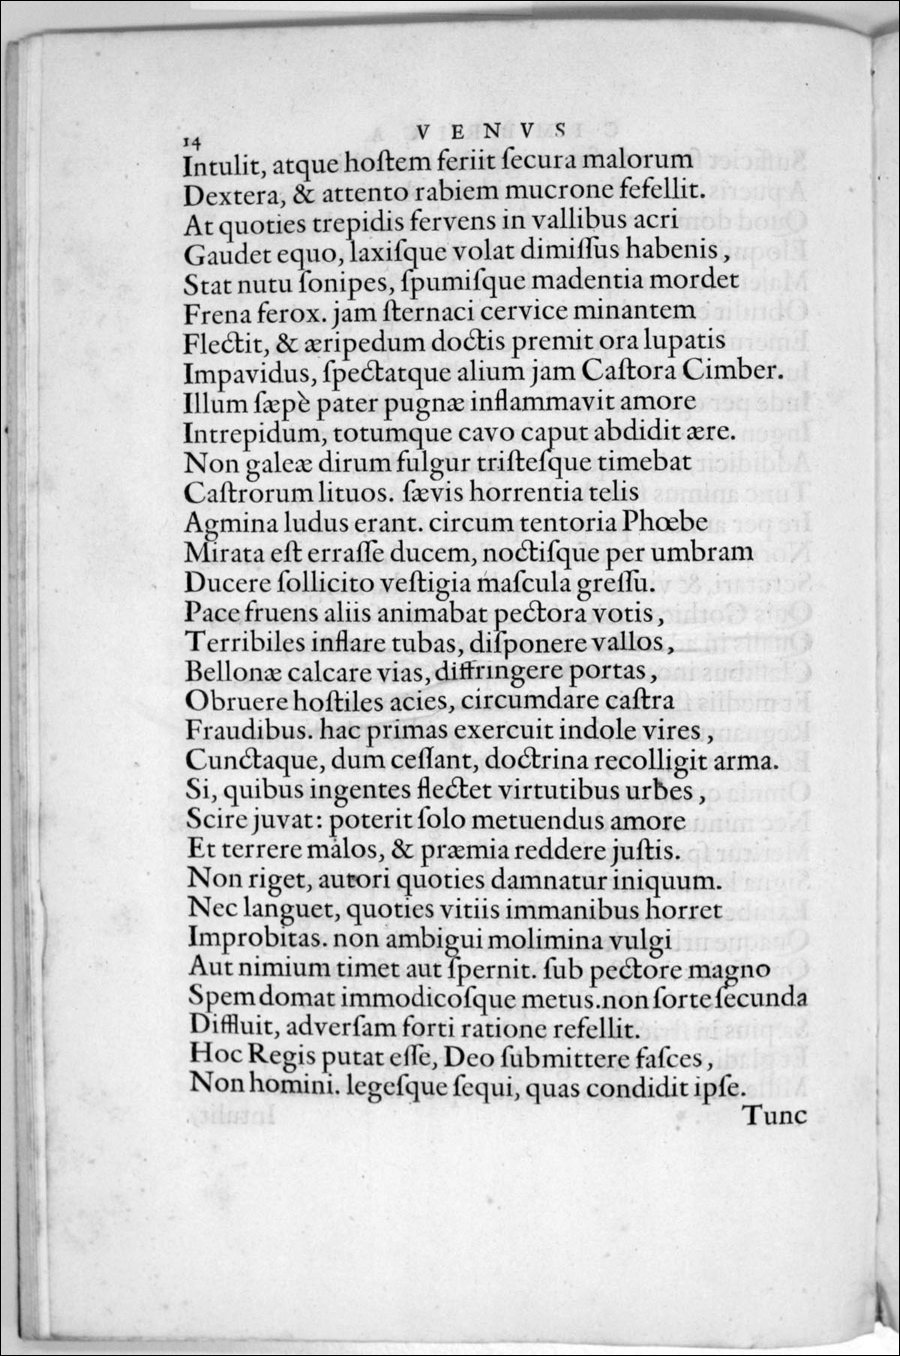 14 VENVS
Intulit, atque hoſtem feriit ſecura malorum
Dextera, & attento rabiem mucrone fefellit.
At quoties trepidis fervens in vallibus acri
Gaudet equo, laxiſque volat dimiſſus habenis,
Stat nutu ſonipes, ſpumiſque madentia mordet
Frena ferox. jam ſternaci cervice minantem
Flectit, & æripedum doctis premit ora lupatis
Impavidus, ſpectatque alium jam Caſtora Cimber.
Illum ſæpè pater pugnæ inflammavit amore
Intrepidum, totumque cavo caput abdidit ære.
Non galeæ dirum fulgur triſteſque timebat
Caſtrorum lituos. ſævis horrentia telis
Agmina ludus erant. circum tentoria Phœbe
Mirata eſt erraſſe ducem, noctiſque per umbram
Ducere ſollicito veſtigia maſcula greſſu.
Pace fruens aliis animabat pectora votis,
Terribiles inflare tubas, diſponere vallos,
Bellonæ calcare vias, diffringere portas,
Obruere hoſtiles acies, circumdare caſtra
Fraudibus. hac primas exercuit indole vires,
Cunctaque, dum ceſſant, doctrina recolligit arma.
Si, quibus ingentes flectet virtutibus urbes,
Scire juvat: poterit ſolo metuendus amore
Et terrere malos, & præmia reddere juſtis.
Non riget, autori quoties damnatur iniquum.
Nec languet, quoties vitiis immanibus horret
Improbitas. non ambigui molimina vulgi
Aut nimium timet aut ſpernit. ſub pectore magno
Spem domat immodicoſque metus. non ſorte ſecunda
Diffluit, adverſam forti ratione refellit.
Hoc Regis putat eſſe, Deo ſubmittere faſces,
Non homini. legeſque ſequi, quas condidit ipſe.
Tunc